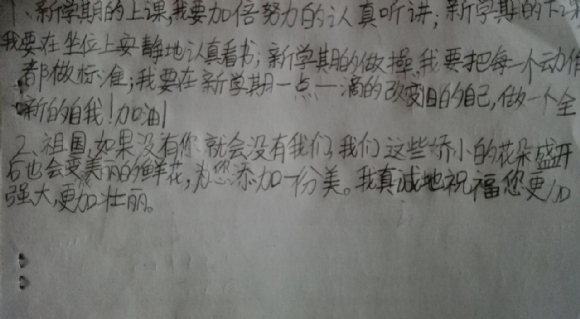 1、新学期的上课,我要加倍努力的认真听讲;新学期的下课
我要在坐位上安静地认真看书;新学期的做操,我要把每一个动作
都做标准;我要在新学期一点一滴的改变旧的自己,做一个全
新的自我!加油!
2、祖国,如果没有你就会没有我们,我们这些娇小的花朵盛开
后也会变美丽的鲜花,为您添加一份美。我真诚地祝福您更加
强大,更加壮丽。